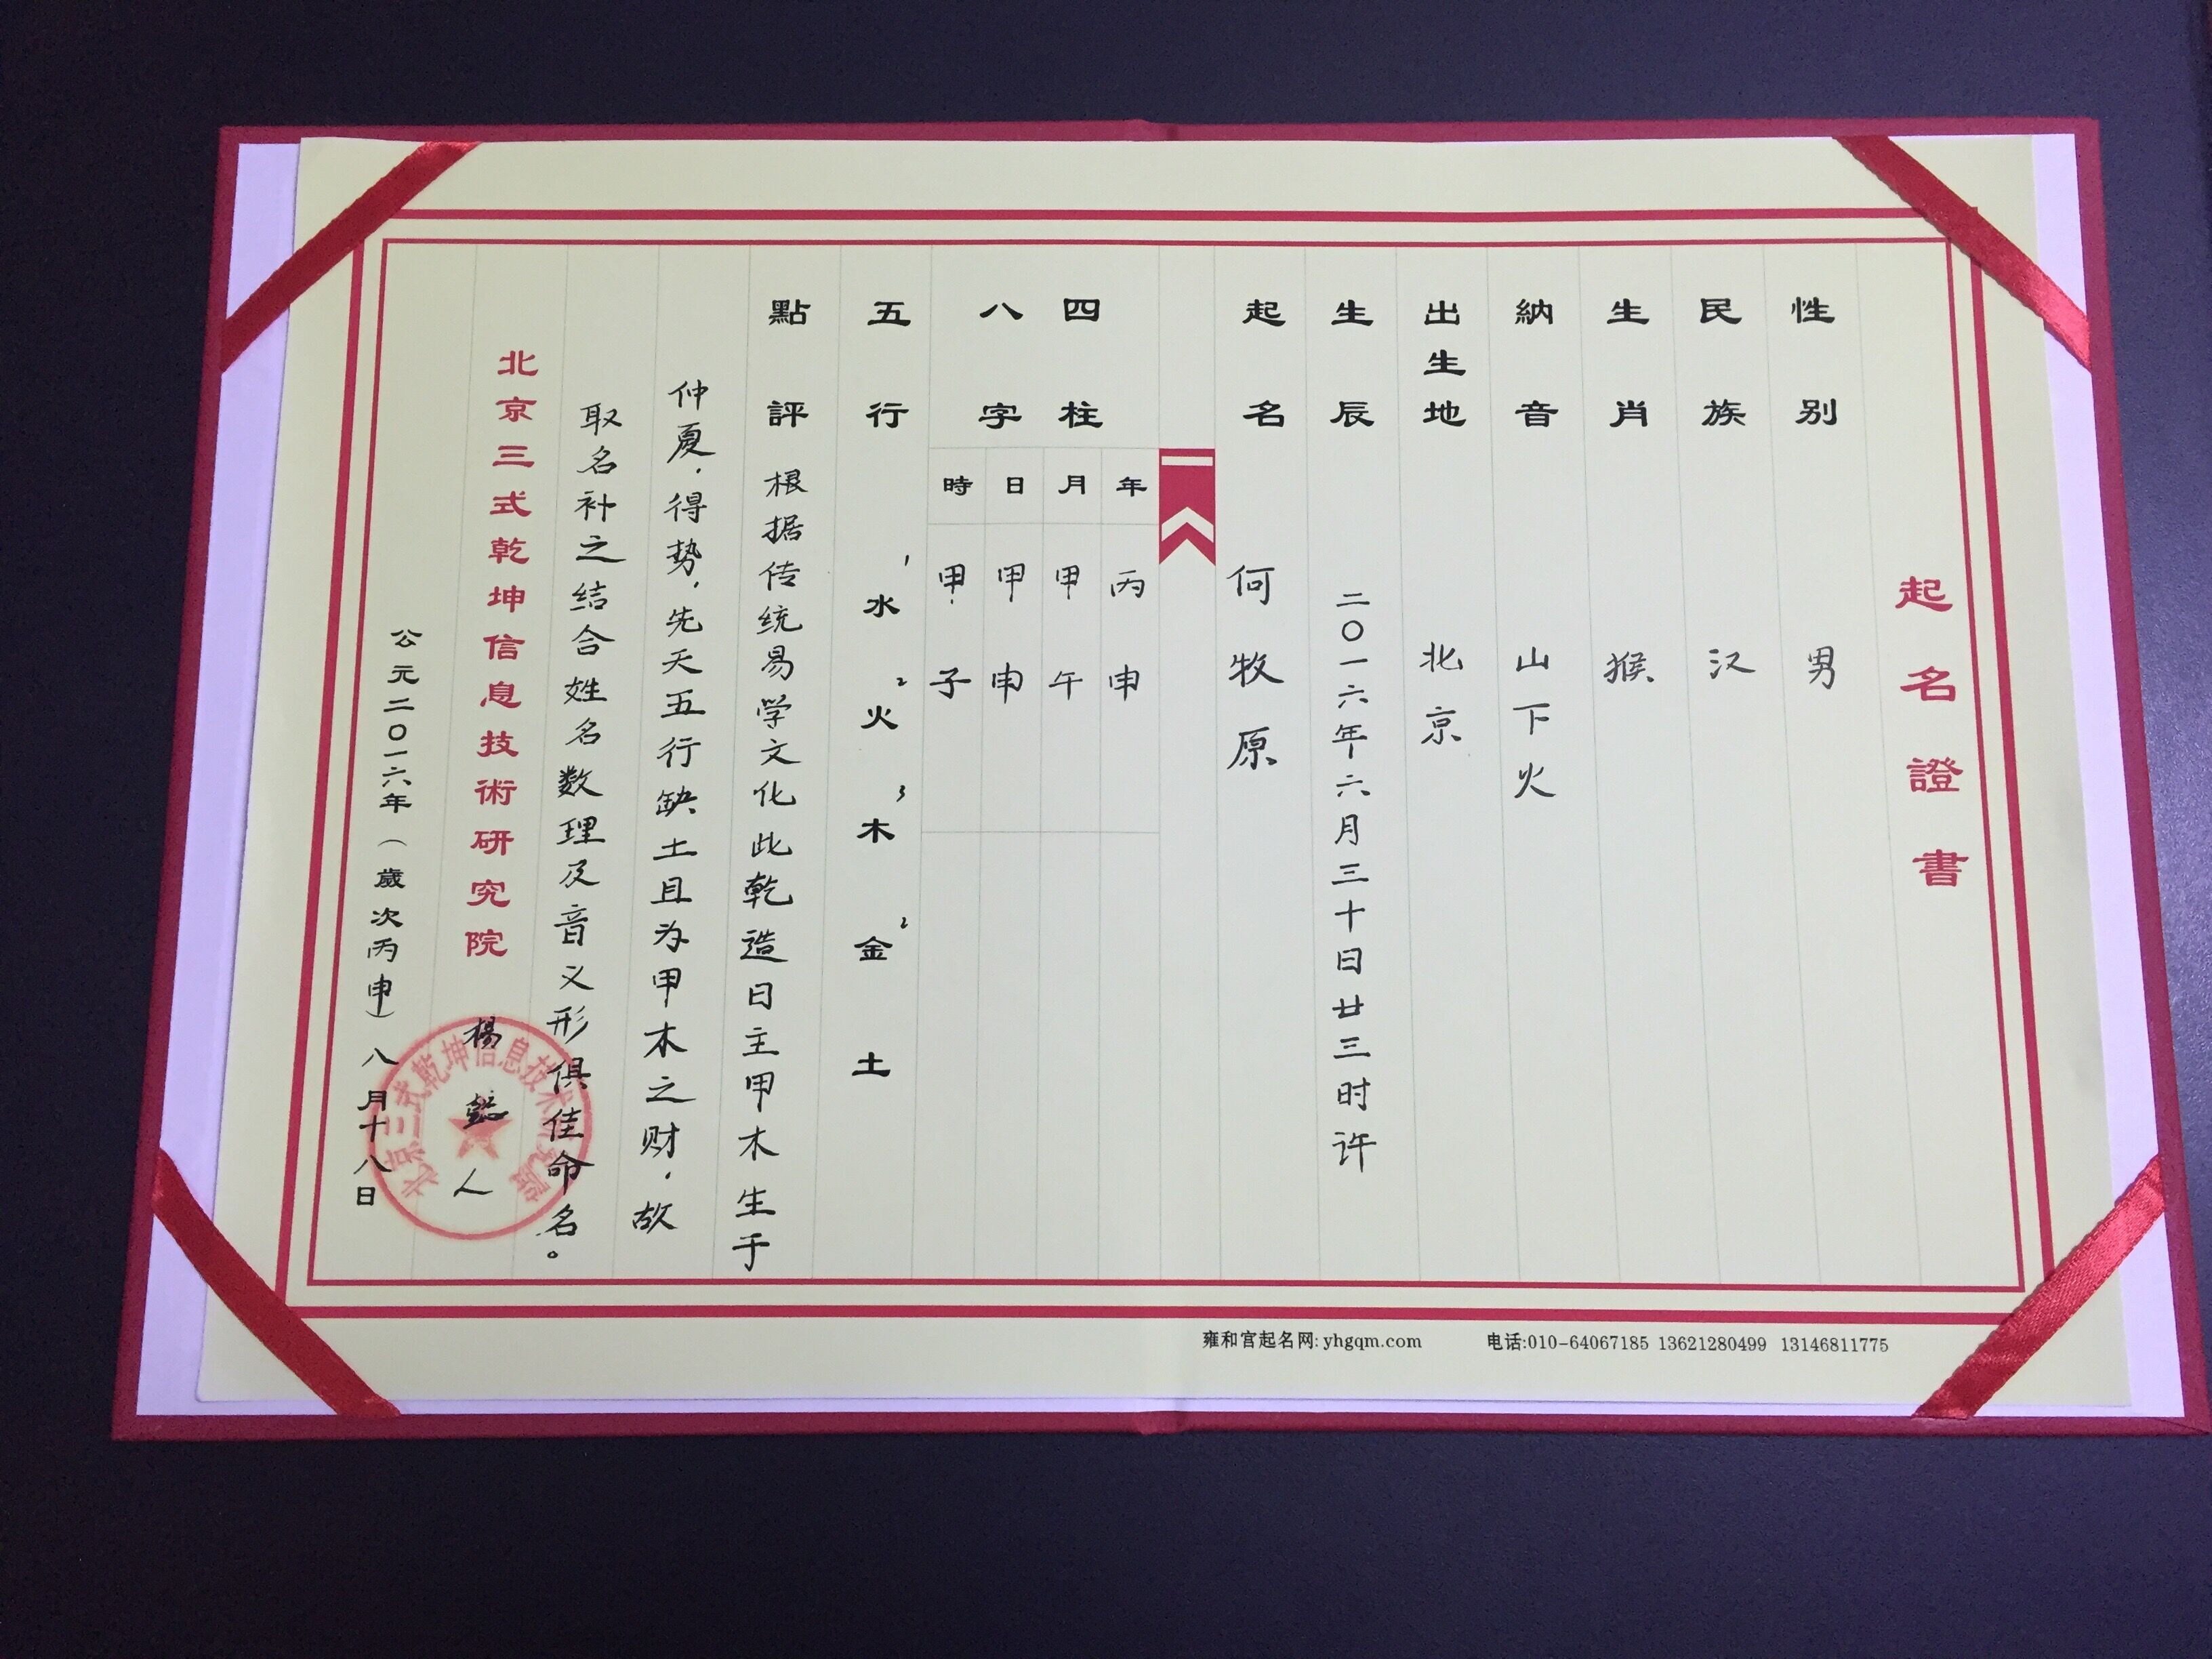 起名證書
性别 男
民族 汉
生肖 猴
納音 山下火
出生地 北京
生辰 二〇一六年六月三十日廿三时许
起名 何牧原
四柱
八字
年 丙申
月 甲午
日 甲申
時 甲子
五行 水1 火2 木3 金2 土
點評 根据传统易学文化此乾造日主甲木生于
仲夏，得势，先天五行缺土且为甲木之财，故
取名补之结合姓名数理及音义形俱佳命名。
北京三式乾坤信息技術研究院 楊懿人
公元二〇一六年（歲次丙申）八月十八日
北京三式乾坤信息技术研究院
雍和宫起名网: yhgqm.com 电话:010-64067185 13621280499 13146811775